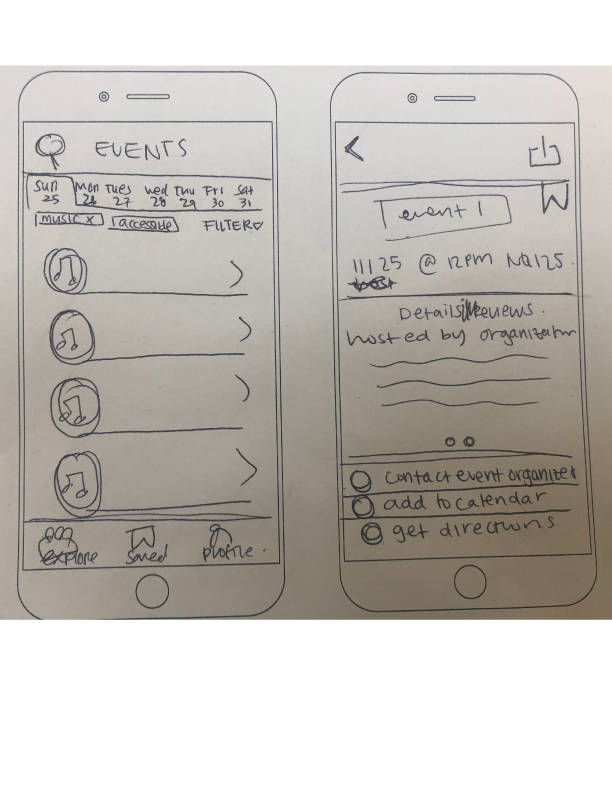 EVENTS
Sun Mon Tues wed Thu Fri Sat
25 26 27 28 29 30 31
music x accessible FILTER
explore saved profile.
event 1
11125 @ 12pm
Details Reviews.
hosted by organizator
contact event organizer
add to calendar
get directions